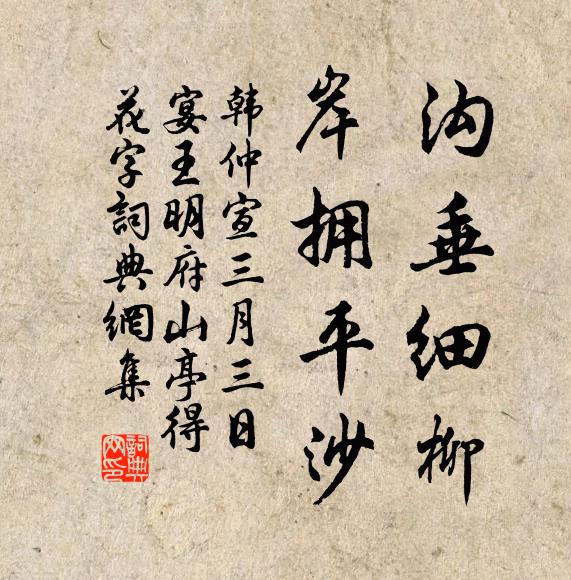 沟垂细柳
岸拥平沙
韩仲宣三月三日
宴王明府山亭得
花字詞典網集
詞典
网印